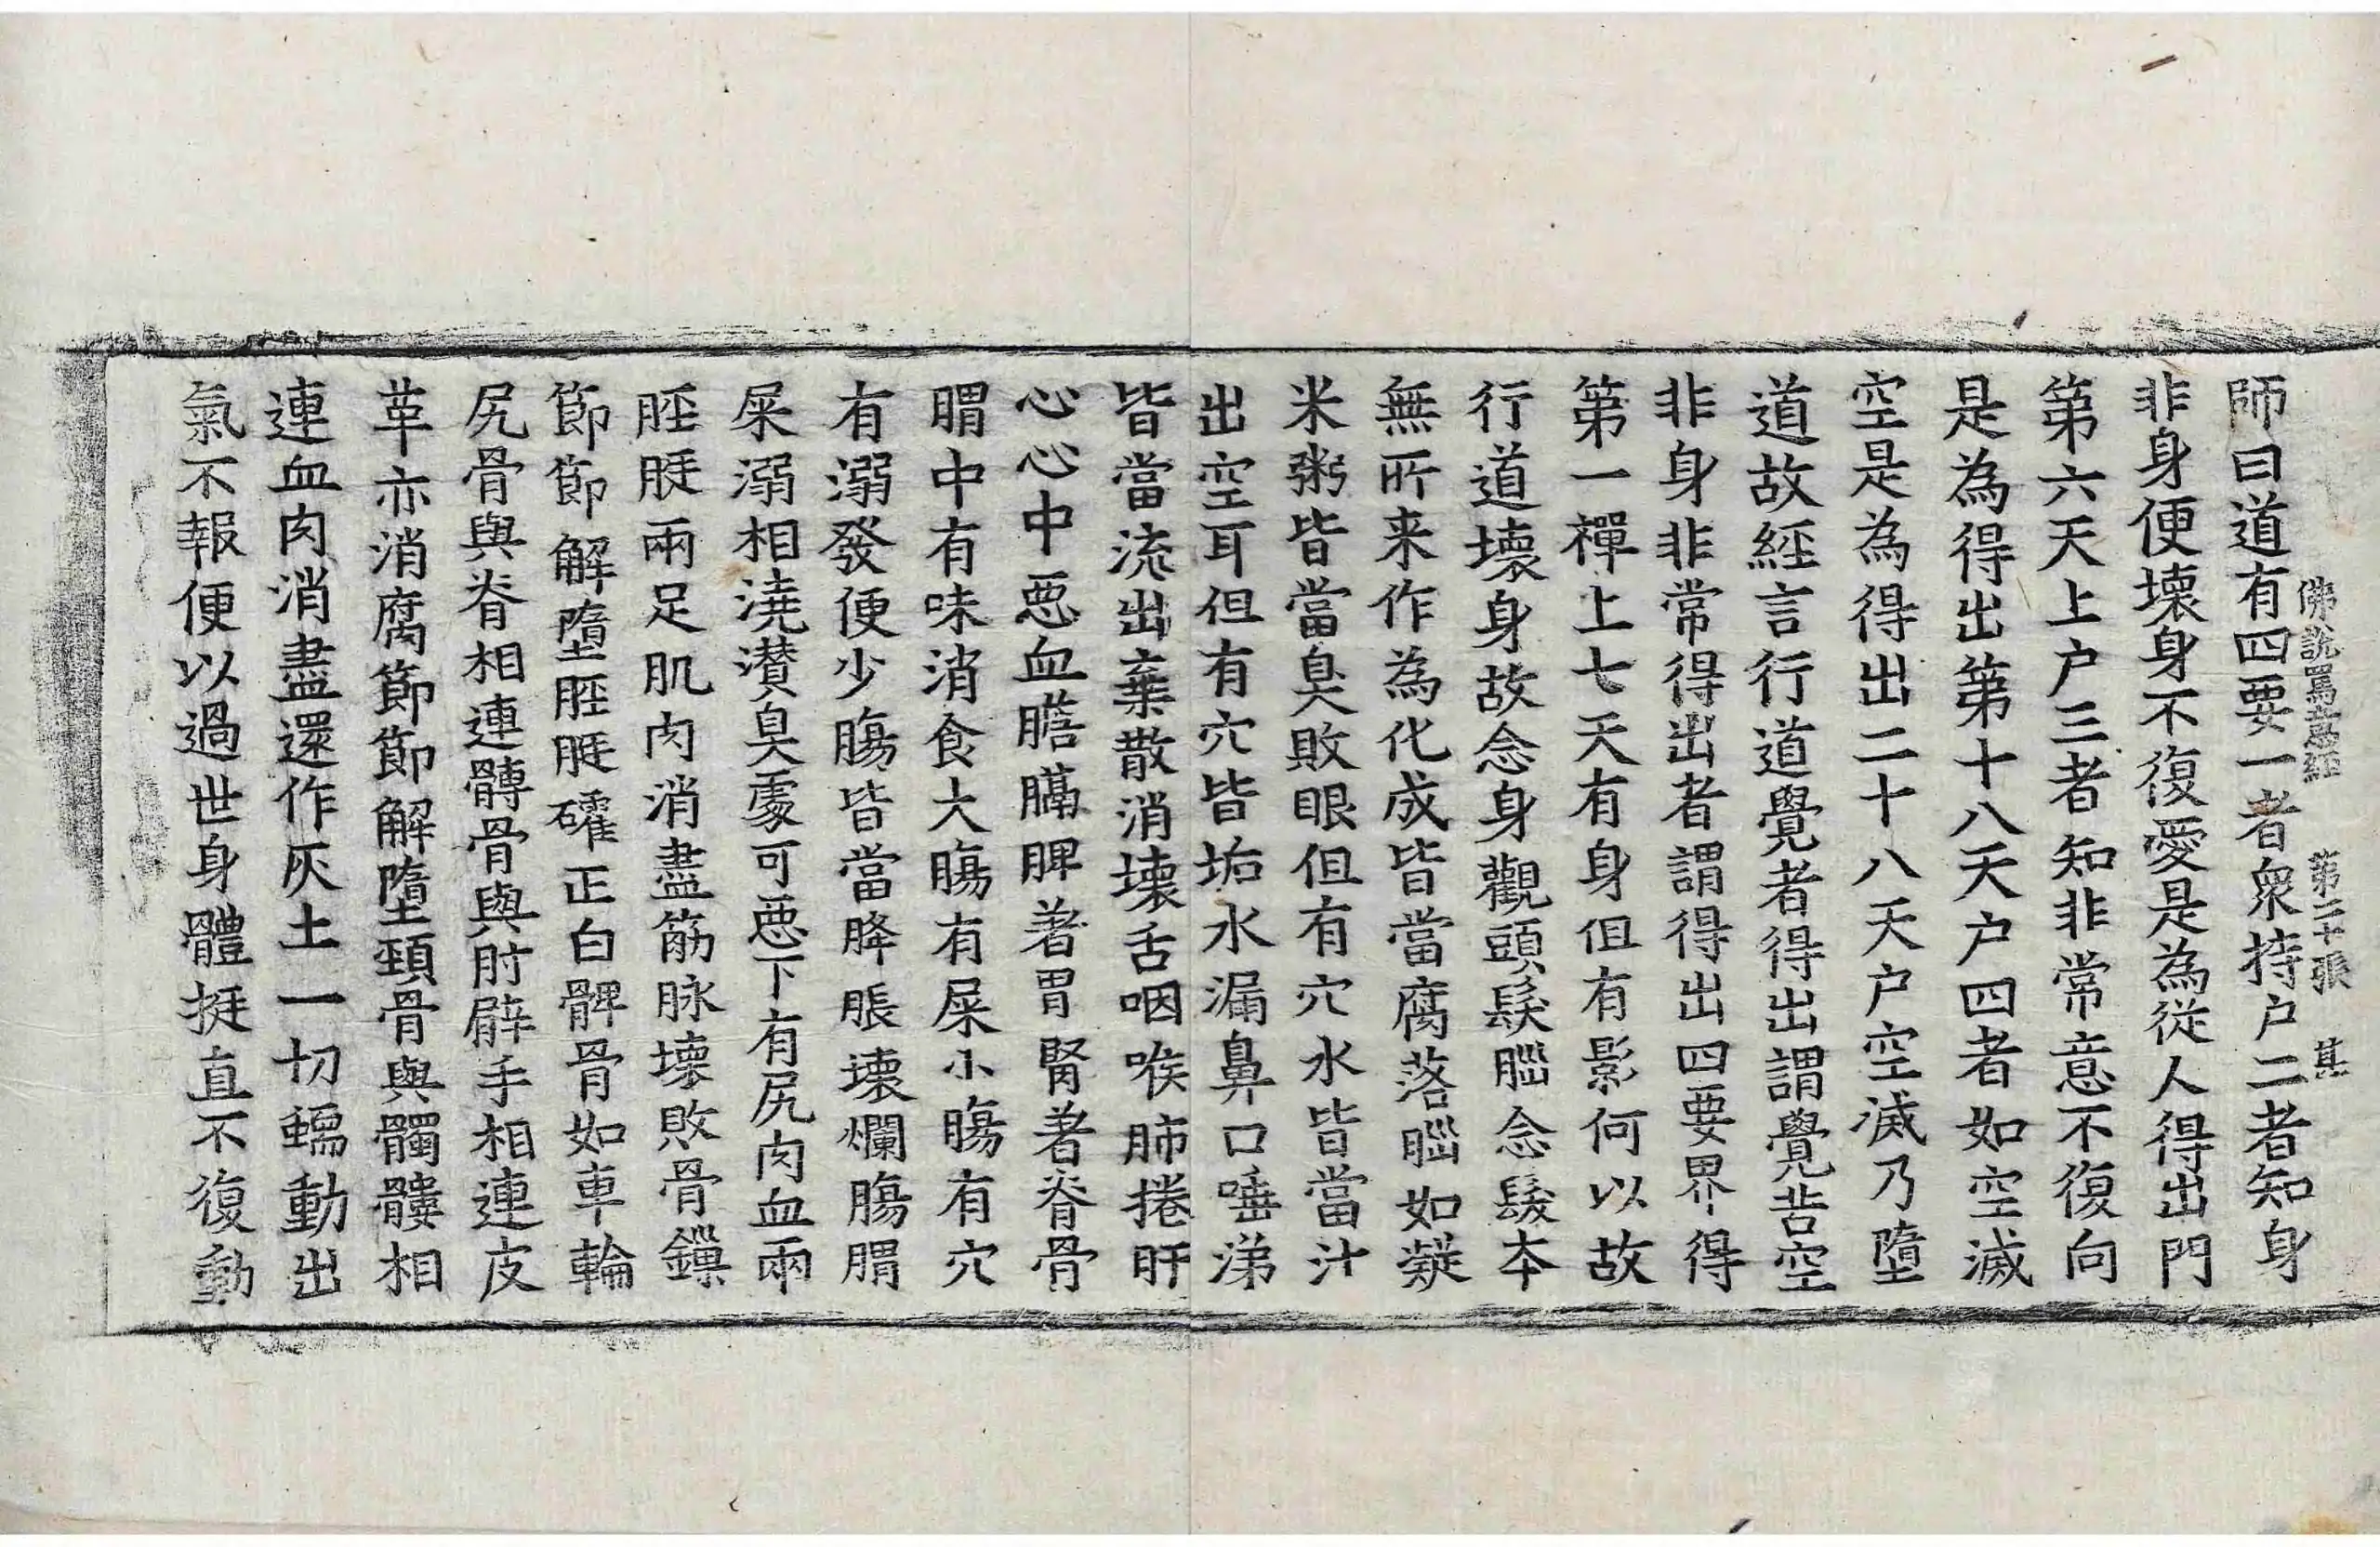 佛說罵意經 第二十張 其
師曰道有四要一者衆持户二者知身
非身便壞身不復愛是為從人得出門
第六天上户三者知非常意不復向
是為得出第十八天户四者如空滅
空是為得出二十八天户空滅乃墮
道故經言行道覺者得出謂覺苦空
非身非常得出者謂得出四要界得
第一禪上七天有身但有影何以故
行道壞身故念身觀頭髮腦念髮本
無所来作為化成皆當腐落腦如凝
米粥皆當臭敗眼但有穴水皆當汁
出空耳但有穴皆垢水漏鼻口唾涕
皆當流出棄散消壞舌咽喉肺捲肝
心心中惡血膽膈脾著胃腎著脊骨
䐜中有味消食大膓有屎小膓有穴
有溺發便少膓皆當胮脹壞爛膓䐜
屎溺相澆灒臭䖏可惡下有尻肉血兩
脛脡兩足肌肉消盡筋脉壞敗骨鏁
節節解墮脛脡礭正白髀骨如車輪
尻骨與脊相連髆骨與肘臂手相連皮
革亦消腐節節解墮頸骨與髑髏相
連血肉消盡還作灰土一切蠕動出
氣不報便以過世身體挺直不復動